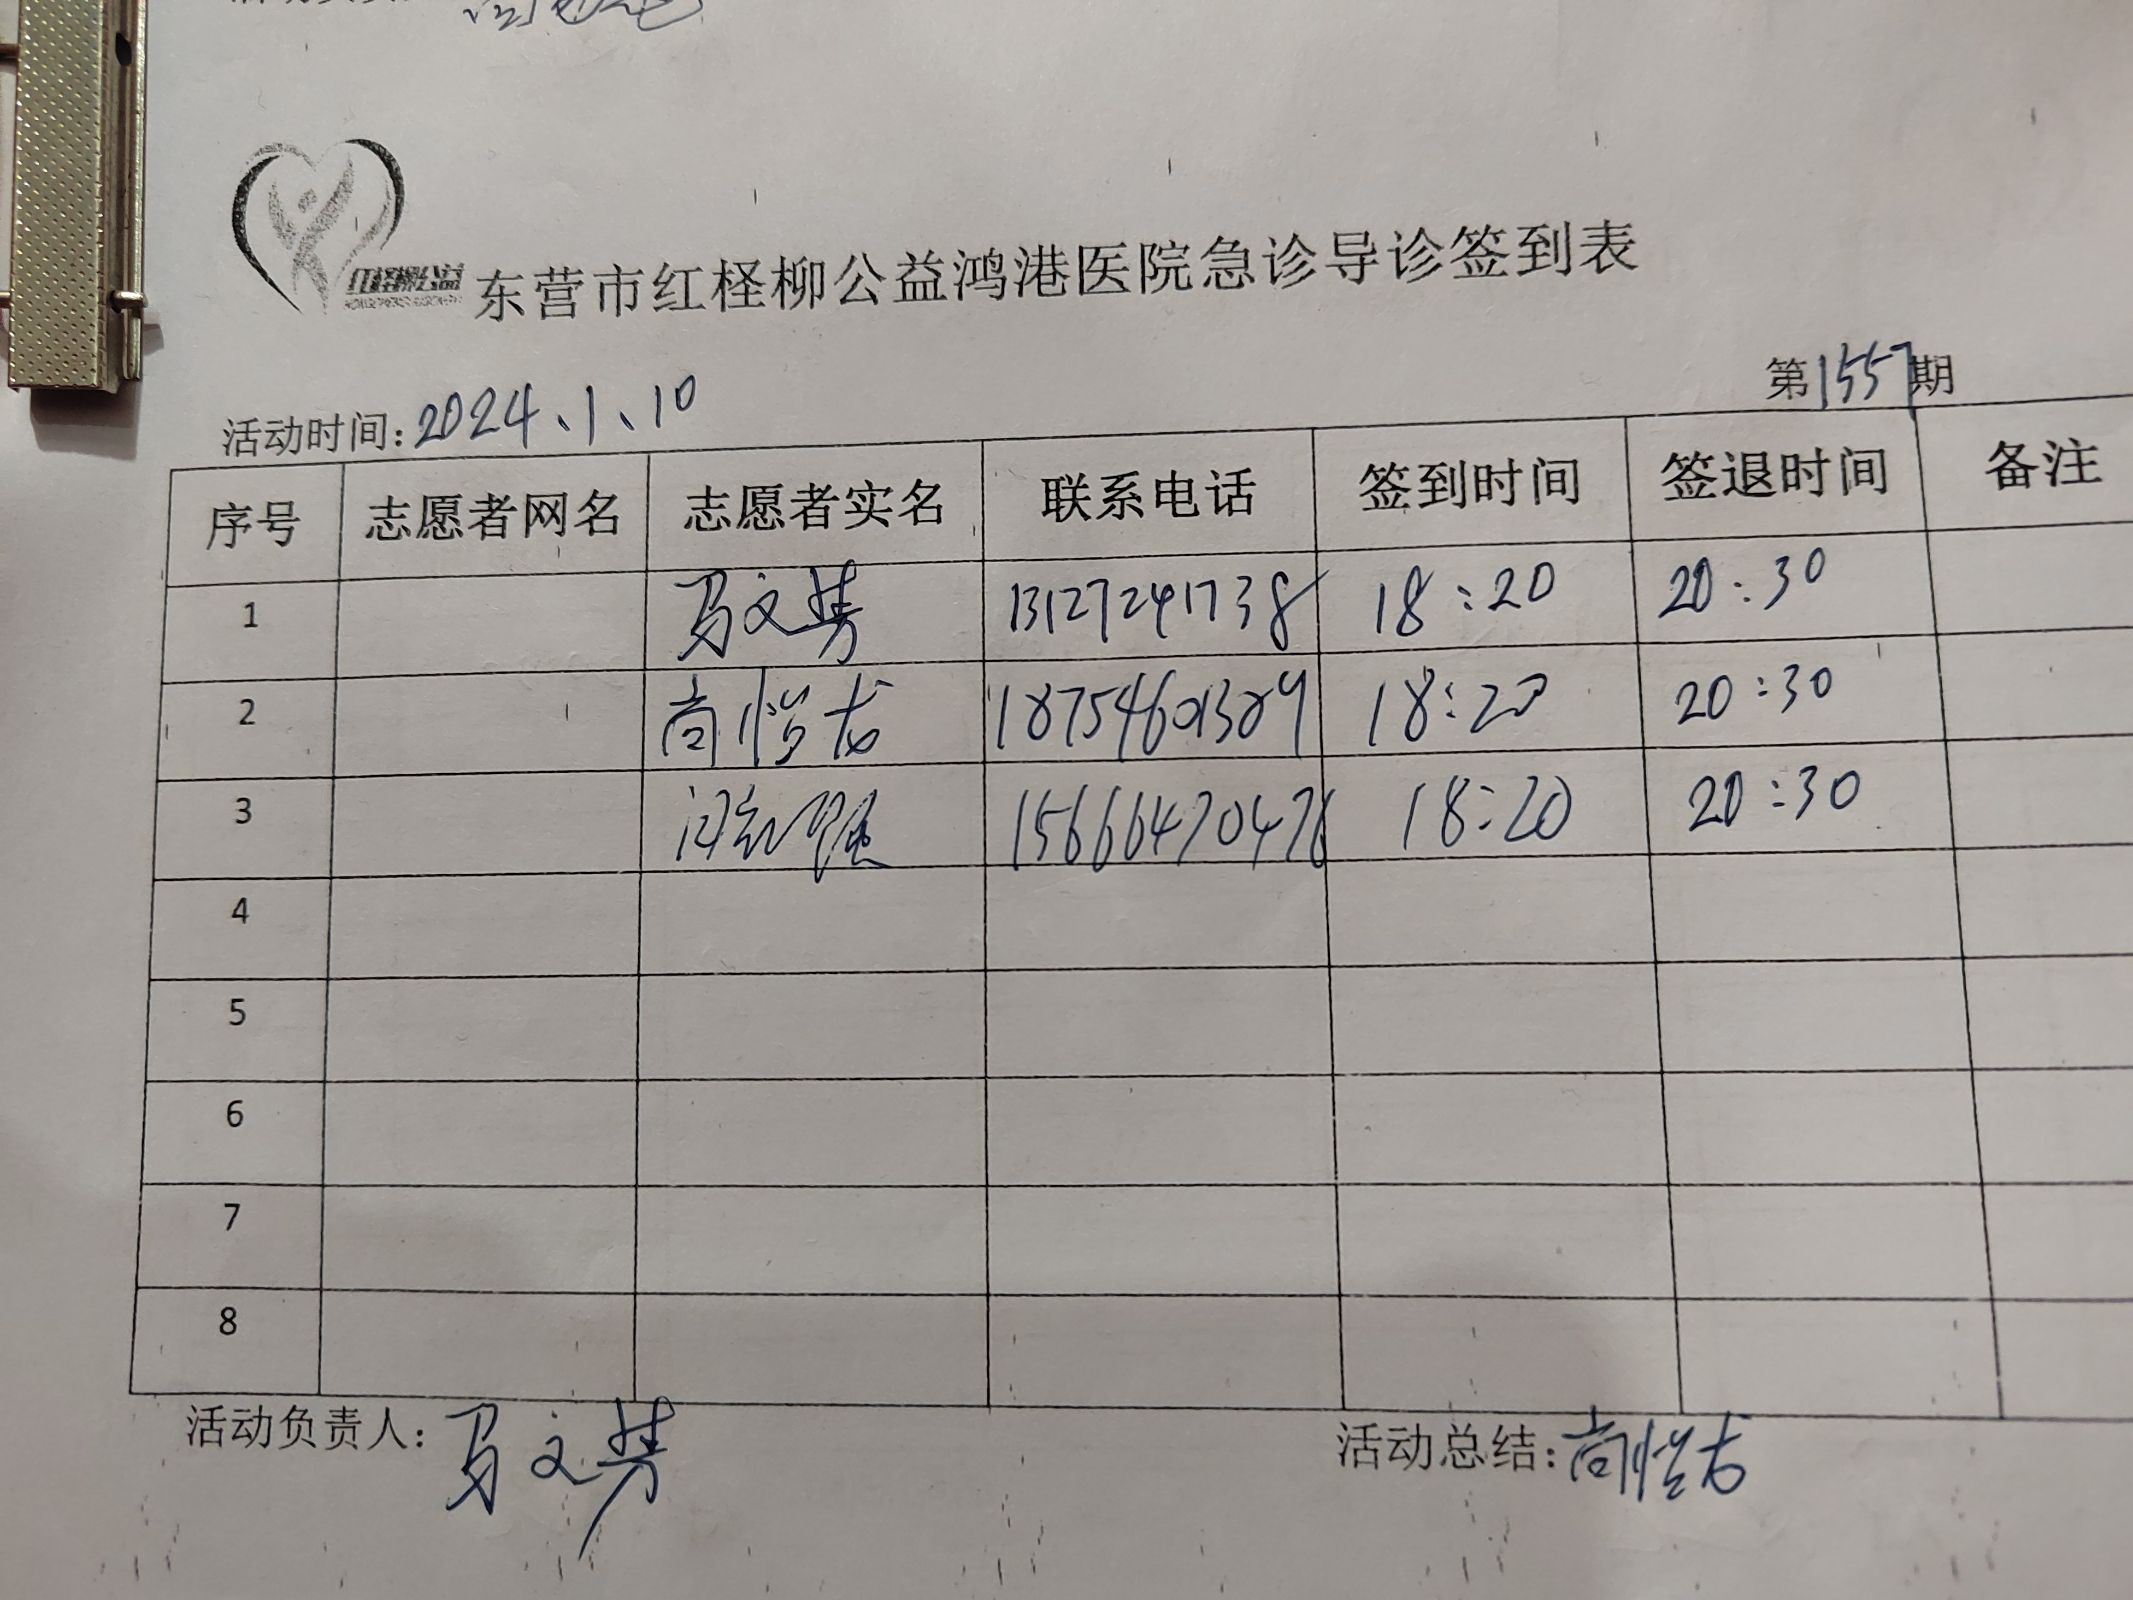 红柽柳公益
东营市红柽柳公益鸿港医院急诊导诊签到表
第1557期
活动时间:2024、1、10
序号 志愿者网名 志愿者实名 联系电话 签到时间 签退时间 备注
1 马文 13127241738 18:20 20:30
2 尚怡龙 18754601389 18:20 20:30
3 15666470476 18:20 20:30
4
5
6
7
8
活动负责人:马文
活动总结:尚怡龙